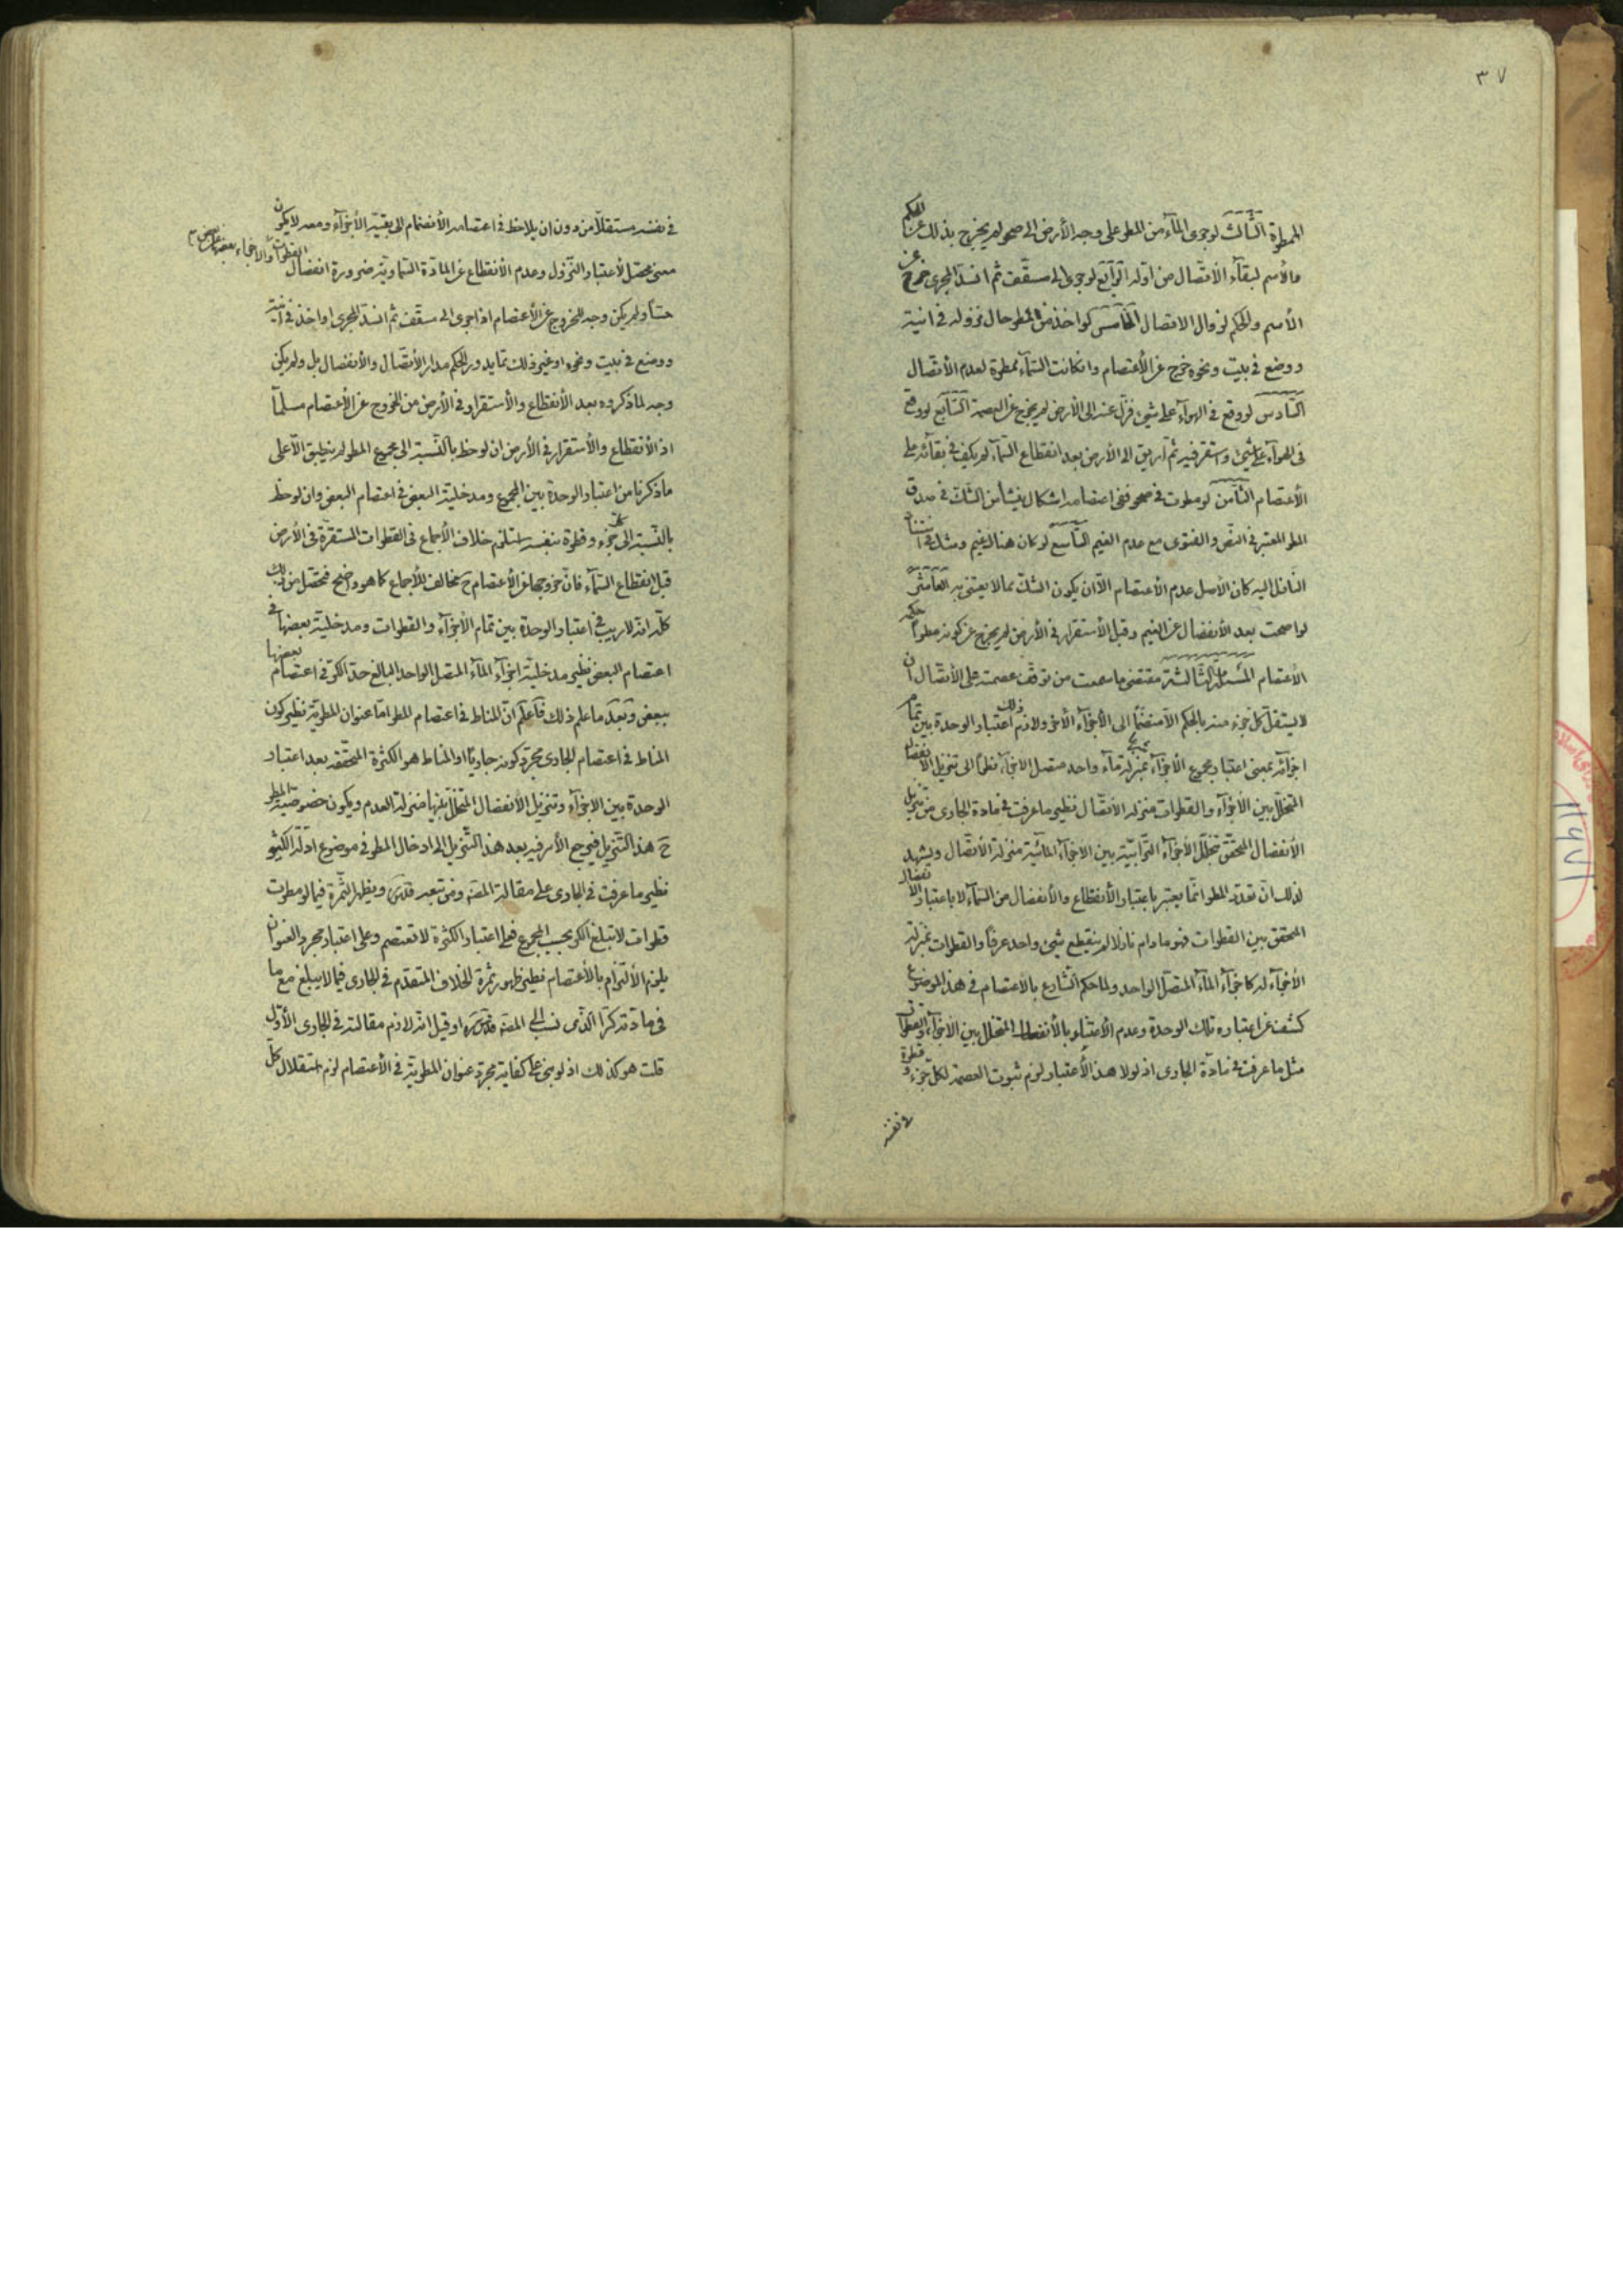 ٣٧
الممطرة الثالث لو جرى المآء من المطر على وجه الأرض الى صحو لم يخرج بذلك عن الحكم
والأسم لبقآء الأتصال من اوله الرابع لو جرى الى سقف ثم انسدّ المجرى خرج عن
الأسم والحكم لزوال الاتصال الخامس لو اخذ من المطر حال نزوله في انية
ووضع في بيت ونحوه خرج عن الأعتصام وان كانت السمآء ممطرة لعدم الأتصال
السادس لو وقع في الهوآء على شئ فنزل عنه الى الأرض لم يخرج عن العصمة السابع لو وقع
في الهوآء على شئ واستقر فيه ثم اريق الى الأرض بعد انقطاع السمآء لم يكف في بقائه على
الأعتصام الثامن لو مطرت في صحو ففي اعتصامه اشكال ينشأ من الشك في صدق
المطر المعتبر في النص والفتوى مع عدم الغيم التاسع لو كان هناك غيم وشك في استناد
النازل اليه كان الأصل عدم الأعتصام الّا ان يكون الشك بما لا يعتنى به العاشر
لو اصحت بعد الأنفصال عن الغيم وقبل الأستقرار في الأرض لم يخرج عن كونه مطرا حكمه
الأعتصام المسئلة الثالثة مقتضى ما سمعت من توقف عصمته على الأتصال ان
لا يستقل كل جزء منه بالحكم الّا منضمّا الى الأجزآء الأخر ولازم ذلك اعتبار الوحدة بين تمام
اجزائه بمعنى اعتبار مجموع الأجزآء بمنزلة مآء واحد متصل الاجزآء نظرا الى تنزيل الانفصال
المتخلل بين الأجزآء والقطرات منزلة الأتصال نظير ما عرفت في مادة الجارى من تنزيل
الأنفصال المحقق بتخلل الأجزآء الترابية بين الاجزآء المائية منزلة الأتصال ويشهد
لذلك ان تعدد المطر انما يعتبر باعتبار الأنقطاع والأنفصال من السمآء لا باعتبار الانفصال
المحقق بين القطرات فهو ما دام نازلا لم ينقطع شئ واحد عرفا والقطرات بمنزلة
الأجزآء له كاجزآء المآء المتصل الواحد ولما حكم الشارع بالاعتصام في هذا الموضوع
كشف عن اعتباره تلك الوحدة وعدم الأعتناء بالأنفصال المتخلل بين الأجزآء والقطرات
مثل ما عرفت في مادة الجارى اذ لولا هذا الأعتبار لزم ثبوت العصمة لكل جزء وقطرة
في نفسه
في نفسه مستقلا من دون ان يلاحظ في اعتصامه الأنضمام الى بقية الأجزآء ومعه لا يكون
معنى محصّل لأعتبار النزول وعدم الأنقطاع عن المادة السماوية ضرورة انفصال القطرات والاجزاء بعضها عن بعض
حسّا ولم يكن وجه للخروج عن الأعتصام اذا جرى الى سقف ثم انسد المجرى او اخذ في آنية
ووضع في بيت ونحوه او غير ذلك مما يدور الحكم مدار الأتصال والأنفصال بل ولم يكن
وجه لما ذكروه بعد الأنقطاع والأستقرار في الأرض من الخروج عن الأعتصام مسلما
اذ الأنقطاع والأستقرار في الأرض ان لوحظ بالنسبة الى مجموع المطر لم ينطبق الّا على
ما ذكرنا من اعتبار الوحدة بين المجموع ومدخلية البعض في اعتصام البعض وان لوحظ
بالنسبة الى كل جزء وقطرة بنفسه استلزم خلاف الأجماع في القطرات المستقرة في الأرض
قبل انقطاع السمآء فان خروجها عن الأعتصام ح مخالف للأجماع كما هو واضح فتحصّل من ذلك
كله انه لا ريب في اعتبار الوحدة بين تمام الأجزآء والقطرات ومدخلية بعضها في
اعتصام البعض نظير مدخلية اجزآء المآء المتصل الواحد البالغ حد الكر في اعتصام بعضها
ببعض وبعد ما علم ذلك فاعلم ان المناط في اعتصام المطر اما عنوان المطرية نظير كون
المناط في اعتصام الجارى مجرد كونه جاريا او المناط هو الكثرة المحققه بعد اعتبار
الوحدة بين الاجزآء وتنزيل الأنفصال المتخلل بينها منزلة العدم ويكون خصوصية المطر
ح هذا التنزيل فيرجع الأمر فيه بعد هذا التنزيل الى ادخال المطر في موضوع ادلّة الكثير
نظير ما عرفت في الجارى على مقالة المصّه ومن تبعه قدّس ويظهر الثمرة فيما لو مطرت
قطرات لا تبلغ الكر بحسب المجموع فعلى اعتبار الكثرة لا تعتصم وعلى اعتبار مجرد العنوان
يلزم الألتزام بالأعتصام نظير ظهور ثمرة الخلاف المتقدم في الجارى فيما لا يبلغ مع ما
في مادته كرّا الذى نسب الى المصّه قدّس سره او قيل انه لازم مقالته في الجارى الأول
قلت هو كذلك اذ لو بنى على كفاية مجرد عنوان المطرية في الأعتصام لزم استقلال كل